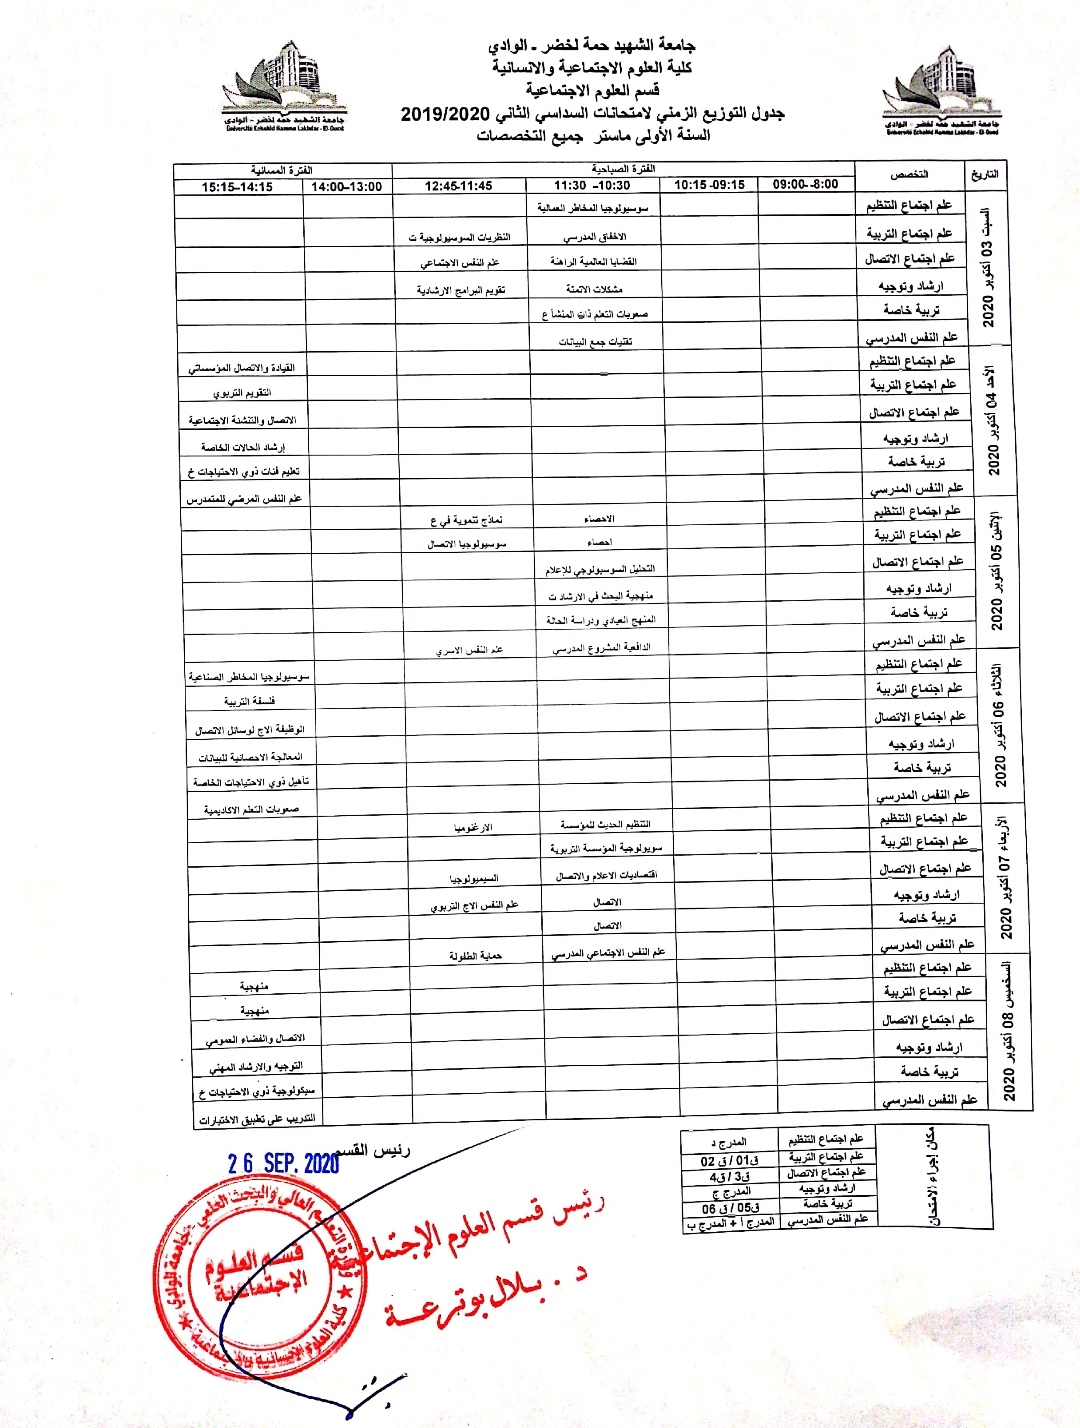 جامعة الشهيد حمة لخضر - الوادي
كلية العلوم الاجتماعية والانسانية
قسم العلوم الاجتماعية
جدول التوزيع الزمني لامتحانات السداسي الثاني 2019/2020
السنة الأولى ماستر جميع التخصصات
جامعة الشهيد حمة لخضر - الوادي
Université Echahid Hamma Lakhdar - El-Oued
جامعة الشهيد حمة لخضر - الوادي
Université Echahid Hamma Lakhdar - El-Oued
التاريخ التخصص الفترة الصباحية الفترة المسائية
09:00-8:00 10:15-09:15 11:30-10:30 12:45-11:45 14:00-13:00 15:15-14:15
السبت 03 أكتوبر 2020
علم اجتماع التنظيم سوسيولوجيا المخاطر العمالية
علم اجتماع التربية الاخفاق المدرسي النظريات السوسيولوجية ت
علم اجتماع الاتصال القضايا العالمية الراهنة علم النفس الاجتماعي
ارشاد وتوجيه مشكلات الاتمتة تقويم البرامج الارشادية
تربية خاصة صعوبات التعلم ذات المنشأ ع
علم النفس المدرسي تقنيات جمع البيانات
الأحد 04 أكتوبر 2020
علم اجتماع التنظيم القيادة والاتصال المؤسساتي
علم اجتماع التربية التقويم التربوي
علم اجتماع الاتصال الاتصال والتنشئة الاجتماعية
ارشاد وتوجيه إرشاد الحالات الخاصة
تربية خاصة تعليم فئات ذوي الاحتياجات خ
علم النفس المدرسي علم النفس المرضي للمتمدرس
الاثنين 05 أكتوبر 2020
علم اجتماع التنظيم الاحصاء نماذج تنموية في ع
علم اجتماع التربية احصاء سوسيولوجيا الاتصال
علم اجتماع الاتصال التحليل السوسيولوجي للإعلام
ارشاد وتوجيه منهجية البحث في الارشاد ت
تربية خاصة المنهج العيادي ودراسة الحالة
علم النفس المدرسي الدافعية المشروع المدرسي علم النفس الاسري
الثلاثاء 06 أكتوبر 2020
علم اجتماع التنظيم سوسيولوجيا المخاطر الصناعية
علم اجتماع التربية فلسفة التربية
علم اجتماع الاتصال الوظيفة الاج لوسائل الاتصال
ارشاد وتوجيه المعالجة الاحصائية للبيانات
تربية خاصة تأهيل ذوي الاحتياجات الخاصة
علم النفس المدرسي صعوبات التعلم الاكاديمية
الأربعاء 07 أكتوبر 2020
علم اجتماع التنظيم التنظيم الحديث للمؤسسة الارغنوميا
علم اجتماع التربية سويولوجية المؤسسة التربوية
علم اجتماع الاتصال اقتصاديات الاعلام والاتصال السيميولوجيا
ارشاد وتوجيه الاتصال علم النفس الاج التربوي
تربية خاصة الاتصال
علم النفس المدرسي علم النفس الاجتماعي المدرسي حماية الطفولة
السخميس 08 أكتوبر 2020
علم اجتماع التنظيم منهجية
علم اجتماع التربية منهجية
علم اجتماع الاتصال الاتصال والفضاء العمومي
ارشاد وتوجيه التوجيه والارشاد المهني
تربية خاصة سيكولوجية ذوي الاحتياجات خ
علم النفس المدرسي التدريب على تطبيق الاختبارات
مكان إجراء الامتحان
علم اجتماع التنظيم المدرج د
علم اجتماع التربية ق01 / ق 02
علم اجتماع الاتصال ق3 / ق4
ارشاد وتوجيه المدرج ج
تربية خاصة ق05 / ق 06
علم النفس المدرسي المدرج أ + المدرج ب
رئيس القسم
26 SEP. 2020
رئيس قسم العلوم الإجتماعية
د. بلال بوترعة
وزارة التعليم العالي والبحث العلمي - جامعة الوادي
كلية العلوم الانسانية والاجتماعية
قسم العلوم
الإجتماعية